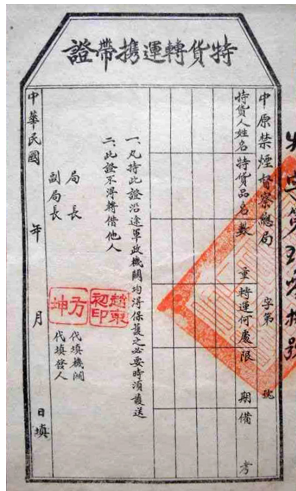 特貨轉運携帶證
中原禁煙督察總局 字第 號
持貨人姓名 特貨品名 數量 特運何處 限期 備考
一、凡持此證沿途軍政機關均得保護之必要時須護送
二、此證不得轉借他人
局長
副局長
代填機關
代填發人
方坤
中華民國 年 月 日填